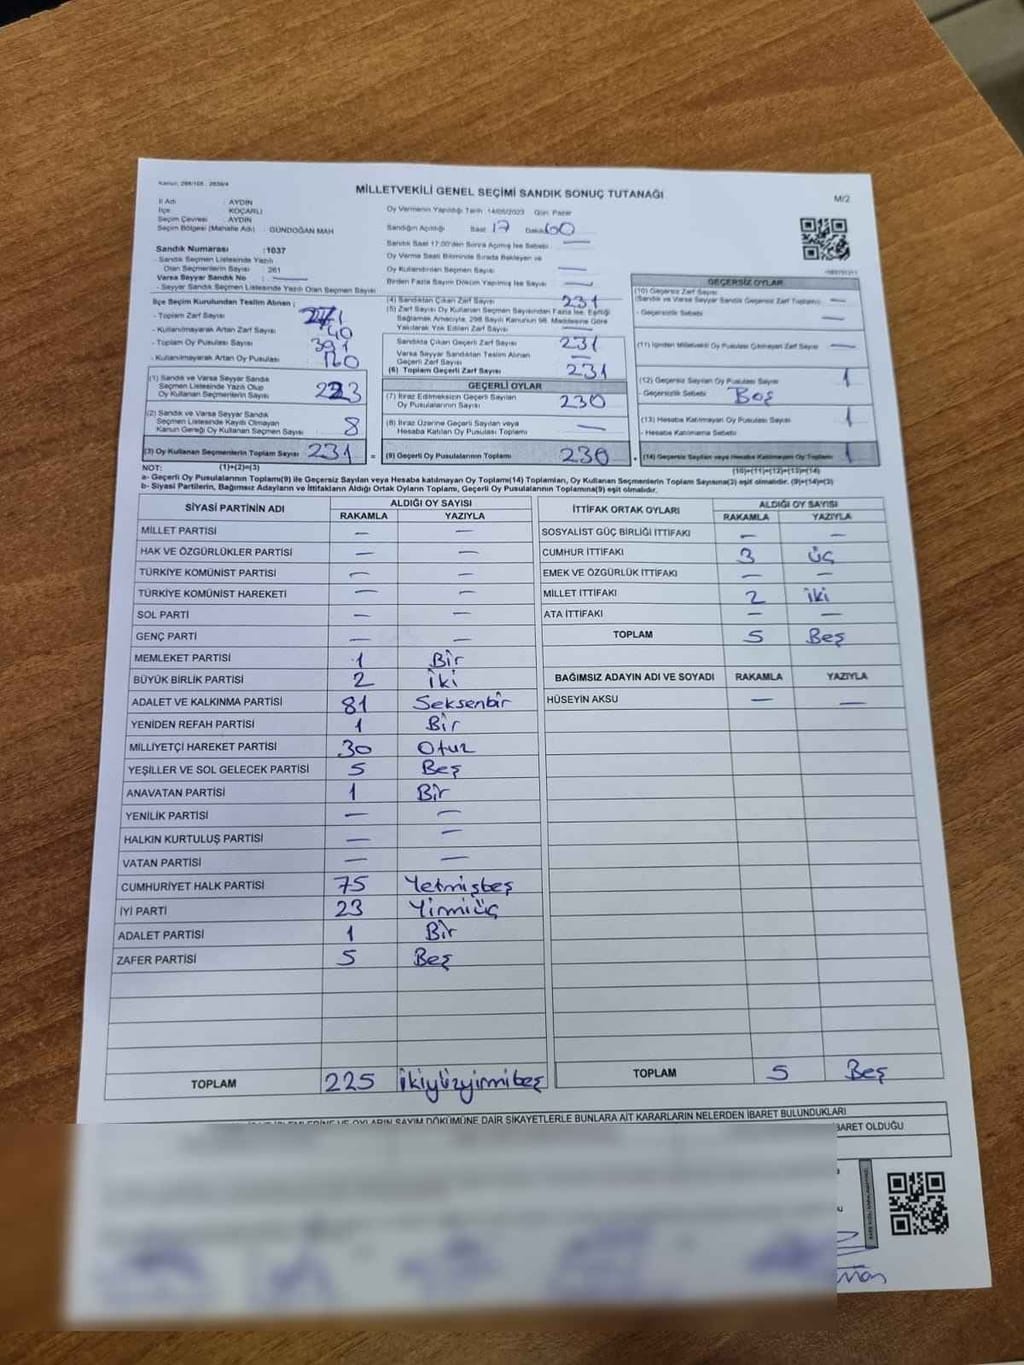 Kanun: 298/105 , 2839/4
MİLLETVEKİLİ GENEL SEÇİMİ SANDIK SONUÇ TUTANAĞI
M/2
İl Adı : AYDIN
İlçe : KOÇARLI
Seçim Çevresi : AYDIN
Seçim Bölgesi (Mahalle Adı) : GÜNDOĞAN MAH
Sandık Numarası :1037
- Sandık Seçmen Listesinde Yazılı
Olan Seçmenlerin Sayısı 261
Varsa Seyyar Sandık No : —
- Seyyar Sandık Seçmen Listesinde Yazılı Olan Seçmen Sayısı
Oy Vermenin Yapıldığı Tarih :14/05/2023 Gün: Pazar
Sandığın Açıldığı Saat 17 Dakika 00
Sandık Saat 17.00'den Sonra Açılmış İse Sebebi —
Oy Verme Saati Bitiminde Sırada Bekleyen ve
Oy Kullandırılan Seçmen Sayısı —
Birden Fazla Sayım Döküm Yapılmış İse Sayısı —
İlçe Seçim Kurulundan Teslim Alınan ;
- Toplam Zarf Sayısı
- Kullanılmayarak Artan Zarf Sayısı 40
- Toplam Oy Pusulası Sayısı 391
- Kullanılmayarak Artan Oy Pusulası 160
(1) Sandık ve Varsa Seyyar Sandık
Seçmen Listesinde Yazılı Olup
Oy Kullanan Seçmenlerin Sayısı 223
(2) Sandık ve Varsa Seyyar Sandık
Seçmen Listesinde Kayıtlı Olmayan
Kanun Gereği Oy Kullanan Seçmen Sayısı 8
(3) Oy Kullanan Seçmenlerin Toplam Sayısı 231 =
(4) Sandıktan Çıkan Zarf Sayısı 231
(5) Zarf Sayısı Oy Kullanan Seçmen Sayısından Fazla İse, Eşitliği
Sağlamak Amacıyla, 298 Sayılı Kanunun 98. Maddesine Göre
Yakılarak Yok Edilen Zarf Sayısı —
Sandıkta Çıkan Geçerli Zarf Sayısı 231
Varsa Seyyar Sandıktan Teslim Alınan
Geçerli Zarf Sayısı —
(6) Toplam Geçerli Zarf Sayısı 231
GEÇERLİ OYLAR
(7) İtiraz Edilmeksizin Geçerli Sayılan
Oy Pusulalarının Sayısı 230
(8) İtiraz Üzerine Geçerli Sayılan veya
Hesaba Katılan Oy Pusulası Toplamı —
(9) Geçerli Oy Pusulalarının Toplamı 230 +
GEÇERSİZ OYLAR
(10) Geçersiz Zarf Sayısı
(Sandık ve Varsa Seyyar Sandık Geçersiz Zarf Toplamı) —
- Geçersizlik Sebebi —
(11) İçinden Milletvekili Oy Pusulası Çıkmayan Zarf Sayısı —
(12) Geçersiz Sayılan Oy Pusulası Sayısı 1
- Geçersizlik Sebebi Boş
(13) Hesaba Katılmayan Oy Pusulası Sayısı 1
- Hesaba Katılmama Sebebi
(14) Geçersiz Sayılan veya Hesaba Katılmayan Oy Toplamı 1
NOT: (1)+(2)=(3) (10)+(11)+(12)+(13)=(14)
a- Geçerli Oy Pusulalarının Toplamı(9) ile Geçersiz Sayılan veya Hesaba katılmayan Oy Toplamı(14) Toplamları, Oy Kullanan Seçmenlerin Toplam Sayısına(3) eşit olmalıdır. (9)+(14)=(3)
b- Siyasi Partilerin, Bağımsız Adayların ve İttifakların Aldığı Ortak Oyların Toplamı, Geçerli Oy Pusulalarının Toplamına(9) eşit olmalıdır.
SİYASİ PARTİNİN ADI ALDIĞI OY SAYISI
RAKAMLA YAZIYLA
MİLLET PARTİSİ — —
HAK VE ÖZGÜRLÜKLER PARTİSİ — —
TÜRKİYE KOMÜNİST PARTİSİ — —
TÜRKİYE KOMÜNİST HAREKETİ — —
SOL PARTİ — —
GENÇ PARTİ — —
MEMLEKET PARTİSİ 1 Bir
BÜYÜK BİRLİK PARTİSİ 2 iki
ADALET VE KALKINMA PARTİSİ 81 Seksenbir
YENİDEN REFAH PARTİSİ 1 Bir
MİLLİYETÇİ HAREKET PARTİSİ 30 Otuz
YEŞİLLER VE SOL GELECEK PARTİSİ 5 Beş
ANAVATAN PARTİSİ 1 Bir
YENİLİK PARTİSİ — —
HALKIN KURTULUŞ PARTİSİ — —
VATAN PARTİSİ — —
CUMHURİYET HALK PARTİSİ 75 Yetmişbeş
İYİ PARTİ 23 Yirmiüç
ADALET PARTİSİ 1 Bir
ZAFER PARTİSİ 5 Beş
TOPLAM 225 ikiyüzyirmibeş
İTTİFAK ORTAK OYLARI ALDIĞI OY SAYISI
RAKAMLA YAZIYLA
SOSYALİST GÜÇ BİRLİĞİ İTTİFAKI — —
CUMHUR İTTİFAKI 3 üç
EMEK VE ÖZGÜRLÜK İTTİFAKI — —
MİLLET İTTİFAKI 2 iki
ATA İTTİFAKI — —
TOPLAM 5 Beş
BAĞIMSIZ ADAYIN ADI VE SOYADI RAKAMLA YAZIYLA
HÜSEYİN AKSU — —
TOPLAM 5 Beş
OYLARIN SAYIM DÖKÜMÜNE DAİR ŞİKAYETLERLE BUNLARA AİT KARARLARIN NELERDEN İBARET BULUNDUKLARI
BARET OLDUĞU